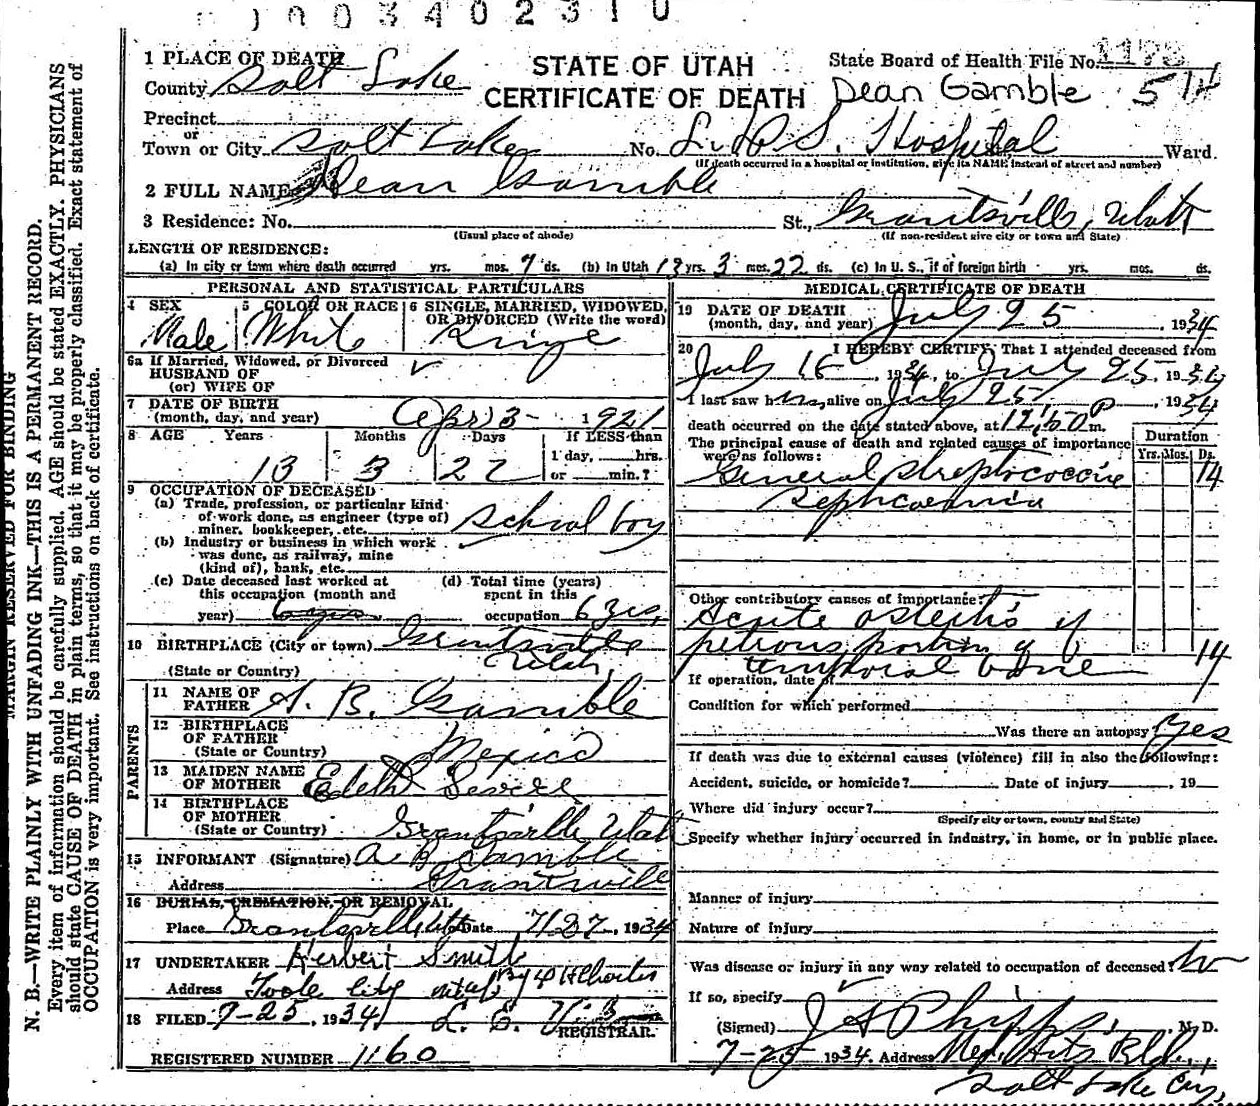 0003402310
1 PLACE OF DEATH
STATE OF UTAH
CERTIFICATE OF DEATH
State Board of Health File No. 1198
County Salt Lake
Dean Gamble 514
Precinct
or
Town or City Salt Lake No. L.D.S. Hospital Ward.
(If death occurred in a hospital or institution, give its NAME instead of street and number)
2 FULL NAME Dean Gamble
3 Residence: No. St., Grantsville, Utah
(Usual place of abode) (If non-resident give city or town and State)
LENGTH OF RESIDENCE:
(a) In city or town where death occurred yrs. mos. 9 ds. (b) In Utah 13 yrs. 3 mos. 22 ds. (c) In U. S., if of foreign birth yrs. mos. ds.
PERSONAL AND STATISTICAL PARTICULARS
4 SEX
Male
5 COLOR OR RACE
White
6 SINGLE, MARRIED, WIDOWED,
OR DIVORCED (Write the word)
6a If Married, Widowed, or Divorced
HUSBAND OF
(or) WIFE OF
7 DATE OF BIRTH
(month, day, and year) Apr 3 1921
8 AGE Years Months Days If LESS than
1 day, hrs.
13 3 22 or min.?
9 OCCUPATION OF DECEASED
(a) Trade, profession, or particular kind
of work done, as engineer (type of)
miner, bookkeeper, etc. School boy
(b) Industry or business in which work
was done, as railway, mine
(kind of), bank, etc.
(c) Date deceased last worked at
this occupation (month and
year) 6 yrs
(d) Total time (years)
spent in this
occupation 6 yrs.
10 BIRTHPLACE (City or town) Grantsville
(State or Country) Utah
PARENTS
11 NAME OF
FATHER A. B. Gamble
12 BIRTHPLACE
OF FATHER
(State or Country) Mexico
13 MAIDEN NAME
OF MOTHER Edith Severe
14 BIRTHPLACE
OF MOTHER
(State or Country) Grantsville Utah
15 INFORMANT (Signature) A. B. Gamble
Address Grantsville
16 BURIAL, CREMATION, OR REMOVAL
Place Grantsville Utah Date 7/27, 1934
17 UNDERTAKER Herbert Smith
Address Tooele City Utah by
18 FILED 7-25, 1934
REGISTRAR.
REGISTERED NUMBER 1160
MEDICAL CERTIFICATE OF DEATH
19 DATE OF DEATH
(month, day, and year) July 25, 1934
20 I HEREBY CERTIFY, That I attended deceased from
July 16, 1934, to July 25, 1934
I last saw him alive on July 25, 1934
death occurred on the date stated above, at 12:50 P m.
The principal cause of death and related causes of importance
were as follows:
Duration
Yrs. Mos. Ds.
General streptococcic 14
Other contributory causes of importance:
Acute osteitis of
petrous portion of
temporal bone 14
If operation, date of
Condition for which performed
Was there an autopsy Yes
If death was due to external causes (violence) fill in also the following:
Accident, suicide, or homicide? Date of injury , 19
Where did injury occur?
(Specify city or town, county and State)
Specify whether injury occurred in industry, in home, or in public place.
Manner of injury
Nature of injury
Was disease or injury in any way related to occupation of deceased? No
If so, specify
(Signed) J A Phipps, M. D.
7-25 1934. Address Med. Arts Bld.,
Salt Lake City,
MARGIN RESERVED FOR BINDING
N. B.—WRITE PLAINLY WITH UNFADING INK—THIS IS A PERMANENT RECORD.
Every item of information should be carefully supplied. AGE should be stated EXACTLY. PHYSICIANS
should state CAUSE OF DEATH in plain terms, so that it may be properly classified. Exact statement of
OCCUPATION is very important. See instructions on back of certificate.